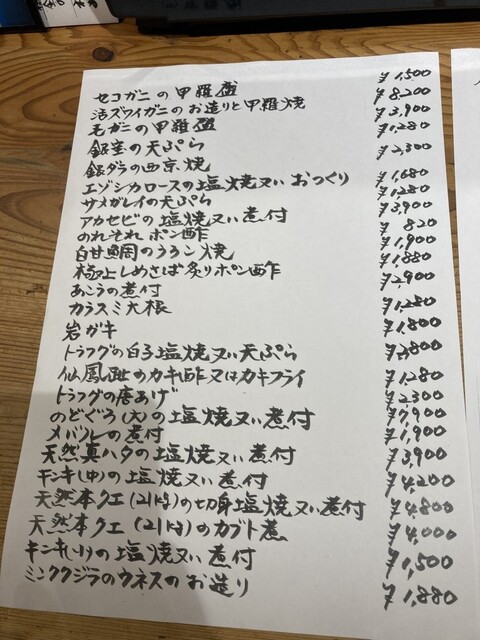 セコガニの甲羅盛 ¥1,500
活ズワイガニのお造りと甲羅焼 ¥8,200
毛ガニの甲羅盛 ¥3,900
銀杏の天ぷら ¥1,280
銀ダラの西京焼 ¥2,300
エゾシカロースの塩焼又ハおつくり
サメガレイの天ぷら ¥1,680
アカセビの塩焼又ハ煮付 ¥1,280
¥3,900
のれそれポン酢 ¥820
白甘鯛のうろこ焼 ¥1,900
極上しめさば炙りポン酢 ¥1,880
あこうの煮付 ¥2,900
カラスミ大根 ¥1,280
岩ガキ ¥1,800
トラフグの白子塩焼又ハ天ぷら ¥3,800
仙鳳趾のカキ酢又はカキフライ ¥1,280
トラフグの唐あげ ¥2,300
のどぐろ(大)の塩焼又ハ煮付 ¥7,900
メバルの煮付 ¥1,900
天然真ハタの塩焼又ハ煮付 ¥3,900
キンキ(中)の塩焼又ハ煮付 ¥4,200
天然本クエ(21kg)の切身塩焼又ハ煮付 ¥4,800
天然本クエ(21kg)のカブト煮 ¥4,000
キンキ(小)の塩焼又ハ煮付 ¥1,500
ミンククジラのウネスのお造り ¥1,880